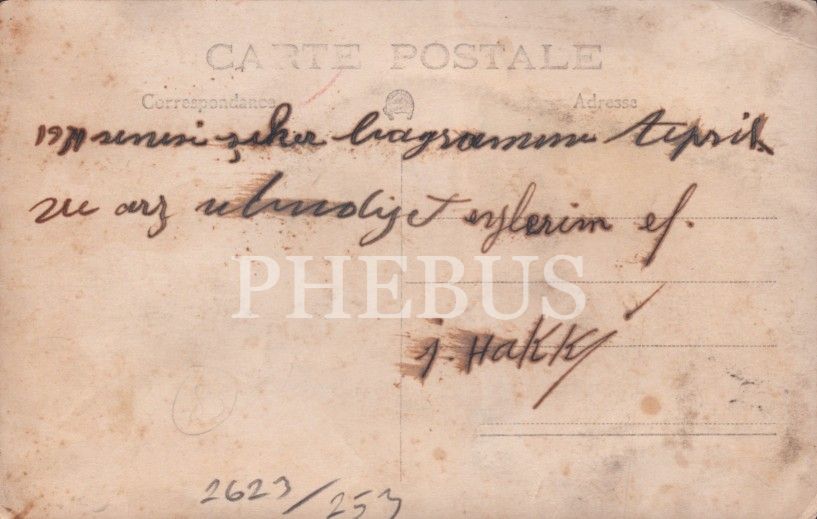 CARTE POSTALE
Correspondance
Adresse
senesi şeker bagramını teprik
ve arz ubudiyet eylerim ef.
PHEBUS
i. HaKKı
2623/253